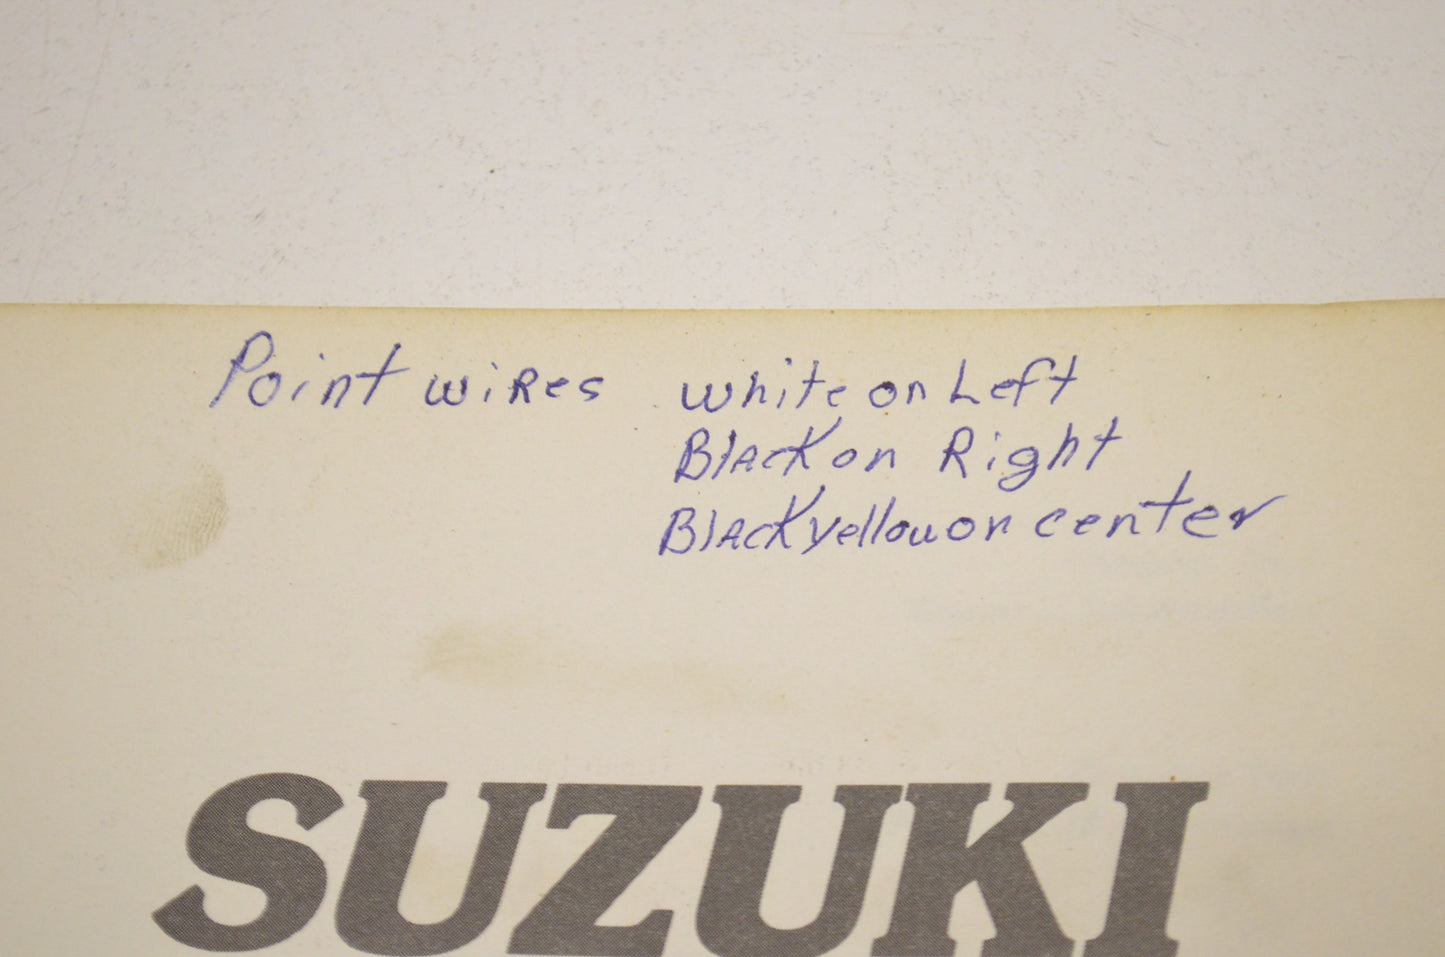 Point wires white on Left
Black on Right
Black yellow on center
SUZUKI